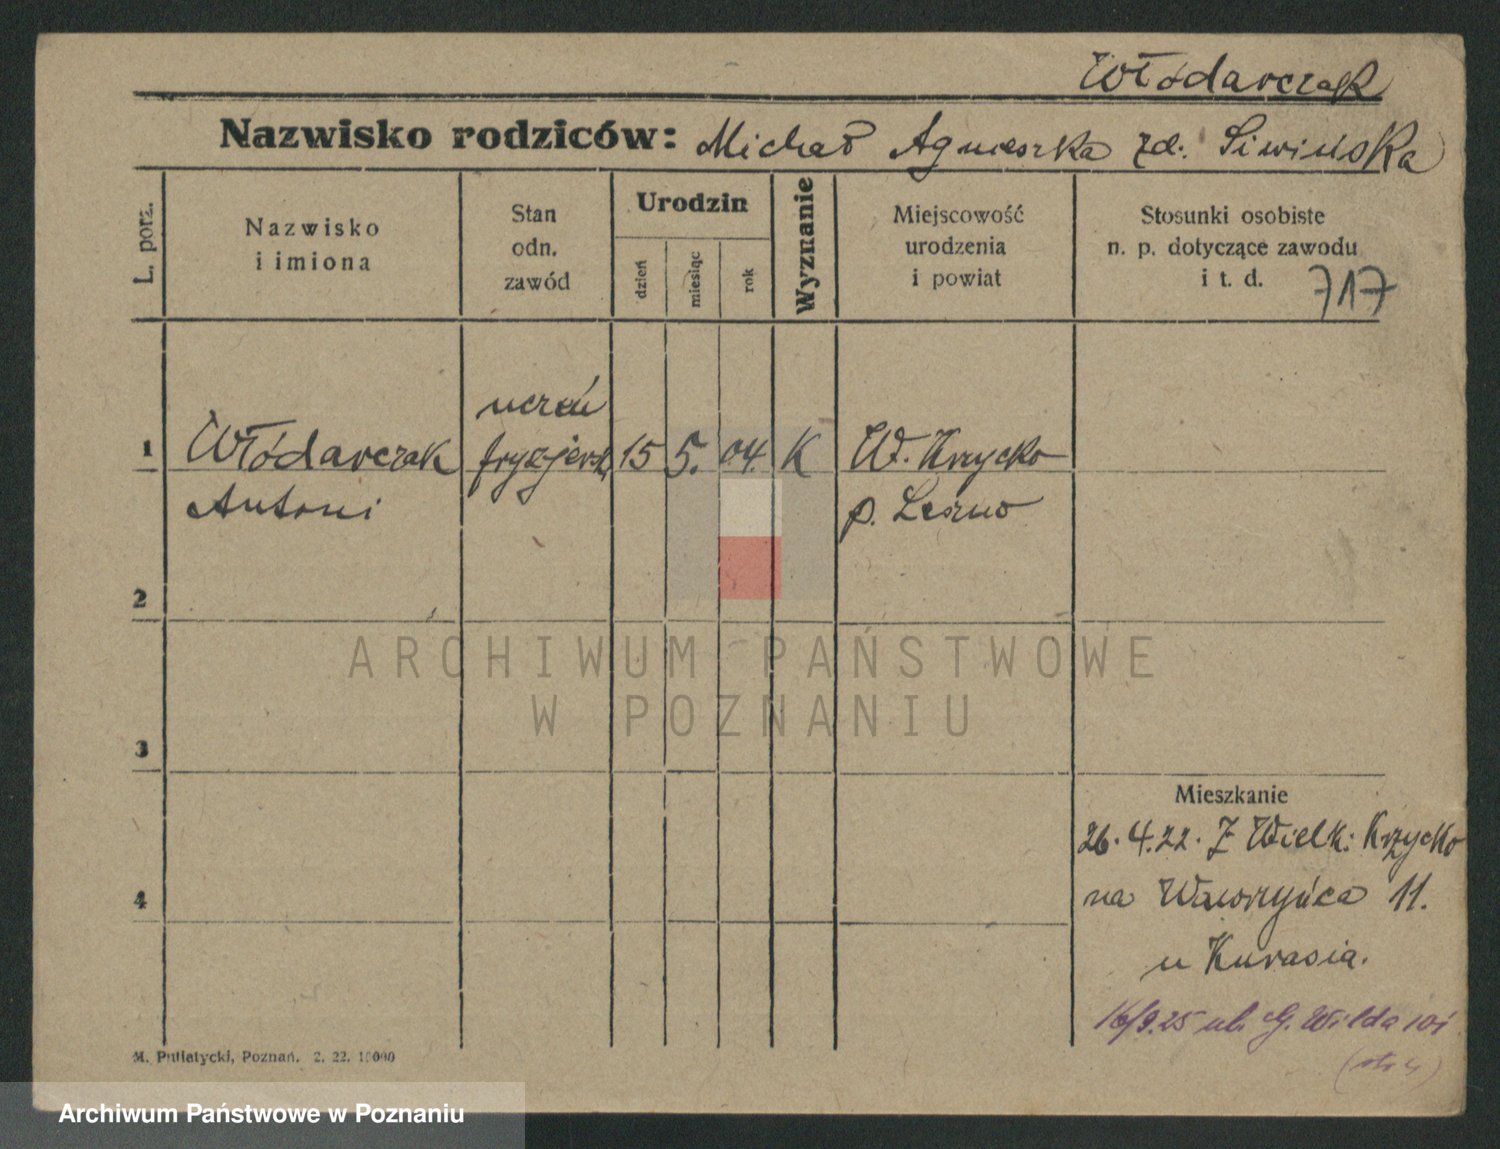 Włódarczak
Nazwisko rodziców: Michał Agnieszka zd. Siwińska
L. porz.
Nazwisko
i imiona
Stan
odn.
zawód
Urodzin
dzień
miesiąc
rok
Wyznanie
Miejscowość
urodzenia
i powiat
Stosunki osobiste
n. p. dotyczące zawodu
i t. d.
717
1
Włódarczak
Antoni
uczeń
fryzjersk
15
5.
04.
K
W. Krzycko
p. Leszno
2
3
4
ARCHIWUM PAŃSTWOWE
W POZNANIU
Mieszkanie
26.4.22. Z Wielk: Krzycko
na Wawrzyńca 11.
u Kurasia.
16/9.25 ul. G. Wilda 101
M. Putiatycki, Poznań. 2. 22. 10000
Archiwum Państwowe w Poznaniu